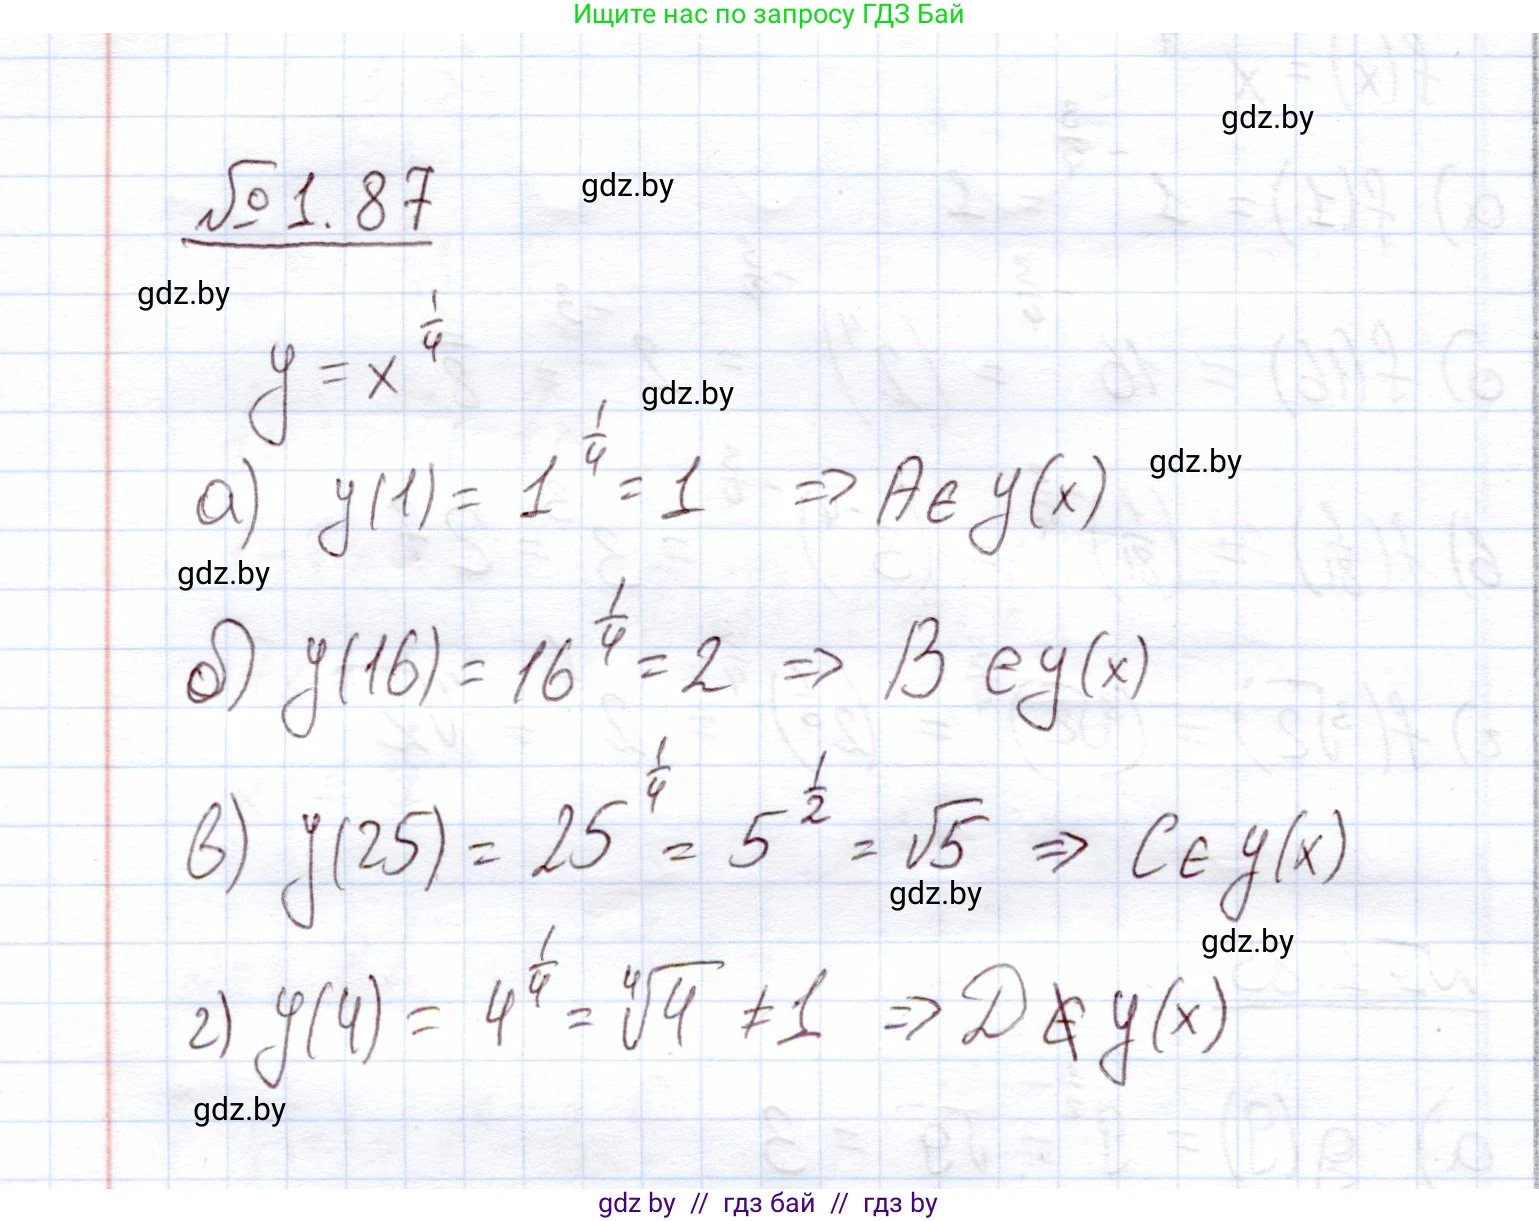 Ищите нас по запросу ГДЗ Бай
gdz.by
№ 1.87
gdz.by
gdz.by
y = x^{1/4}
gdz.by
а) y(1) = 1^{1/4} = 1 => A ∈ y(x)
gdz.by
gdz.by
б) y(16) = 16^{1/4} = 2 => B ∈ y(x)
в) y(25) = 25^{1/4} = 5^{1/2} = √5 => C ∈ y(x)
gdz.by
gdz.by
г) y(4) = 4^{1/4} = ∜4 ≠ 1 => D ∉ y(x)
gdz.by
gdz by // гдз бай // гдз by